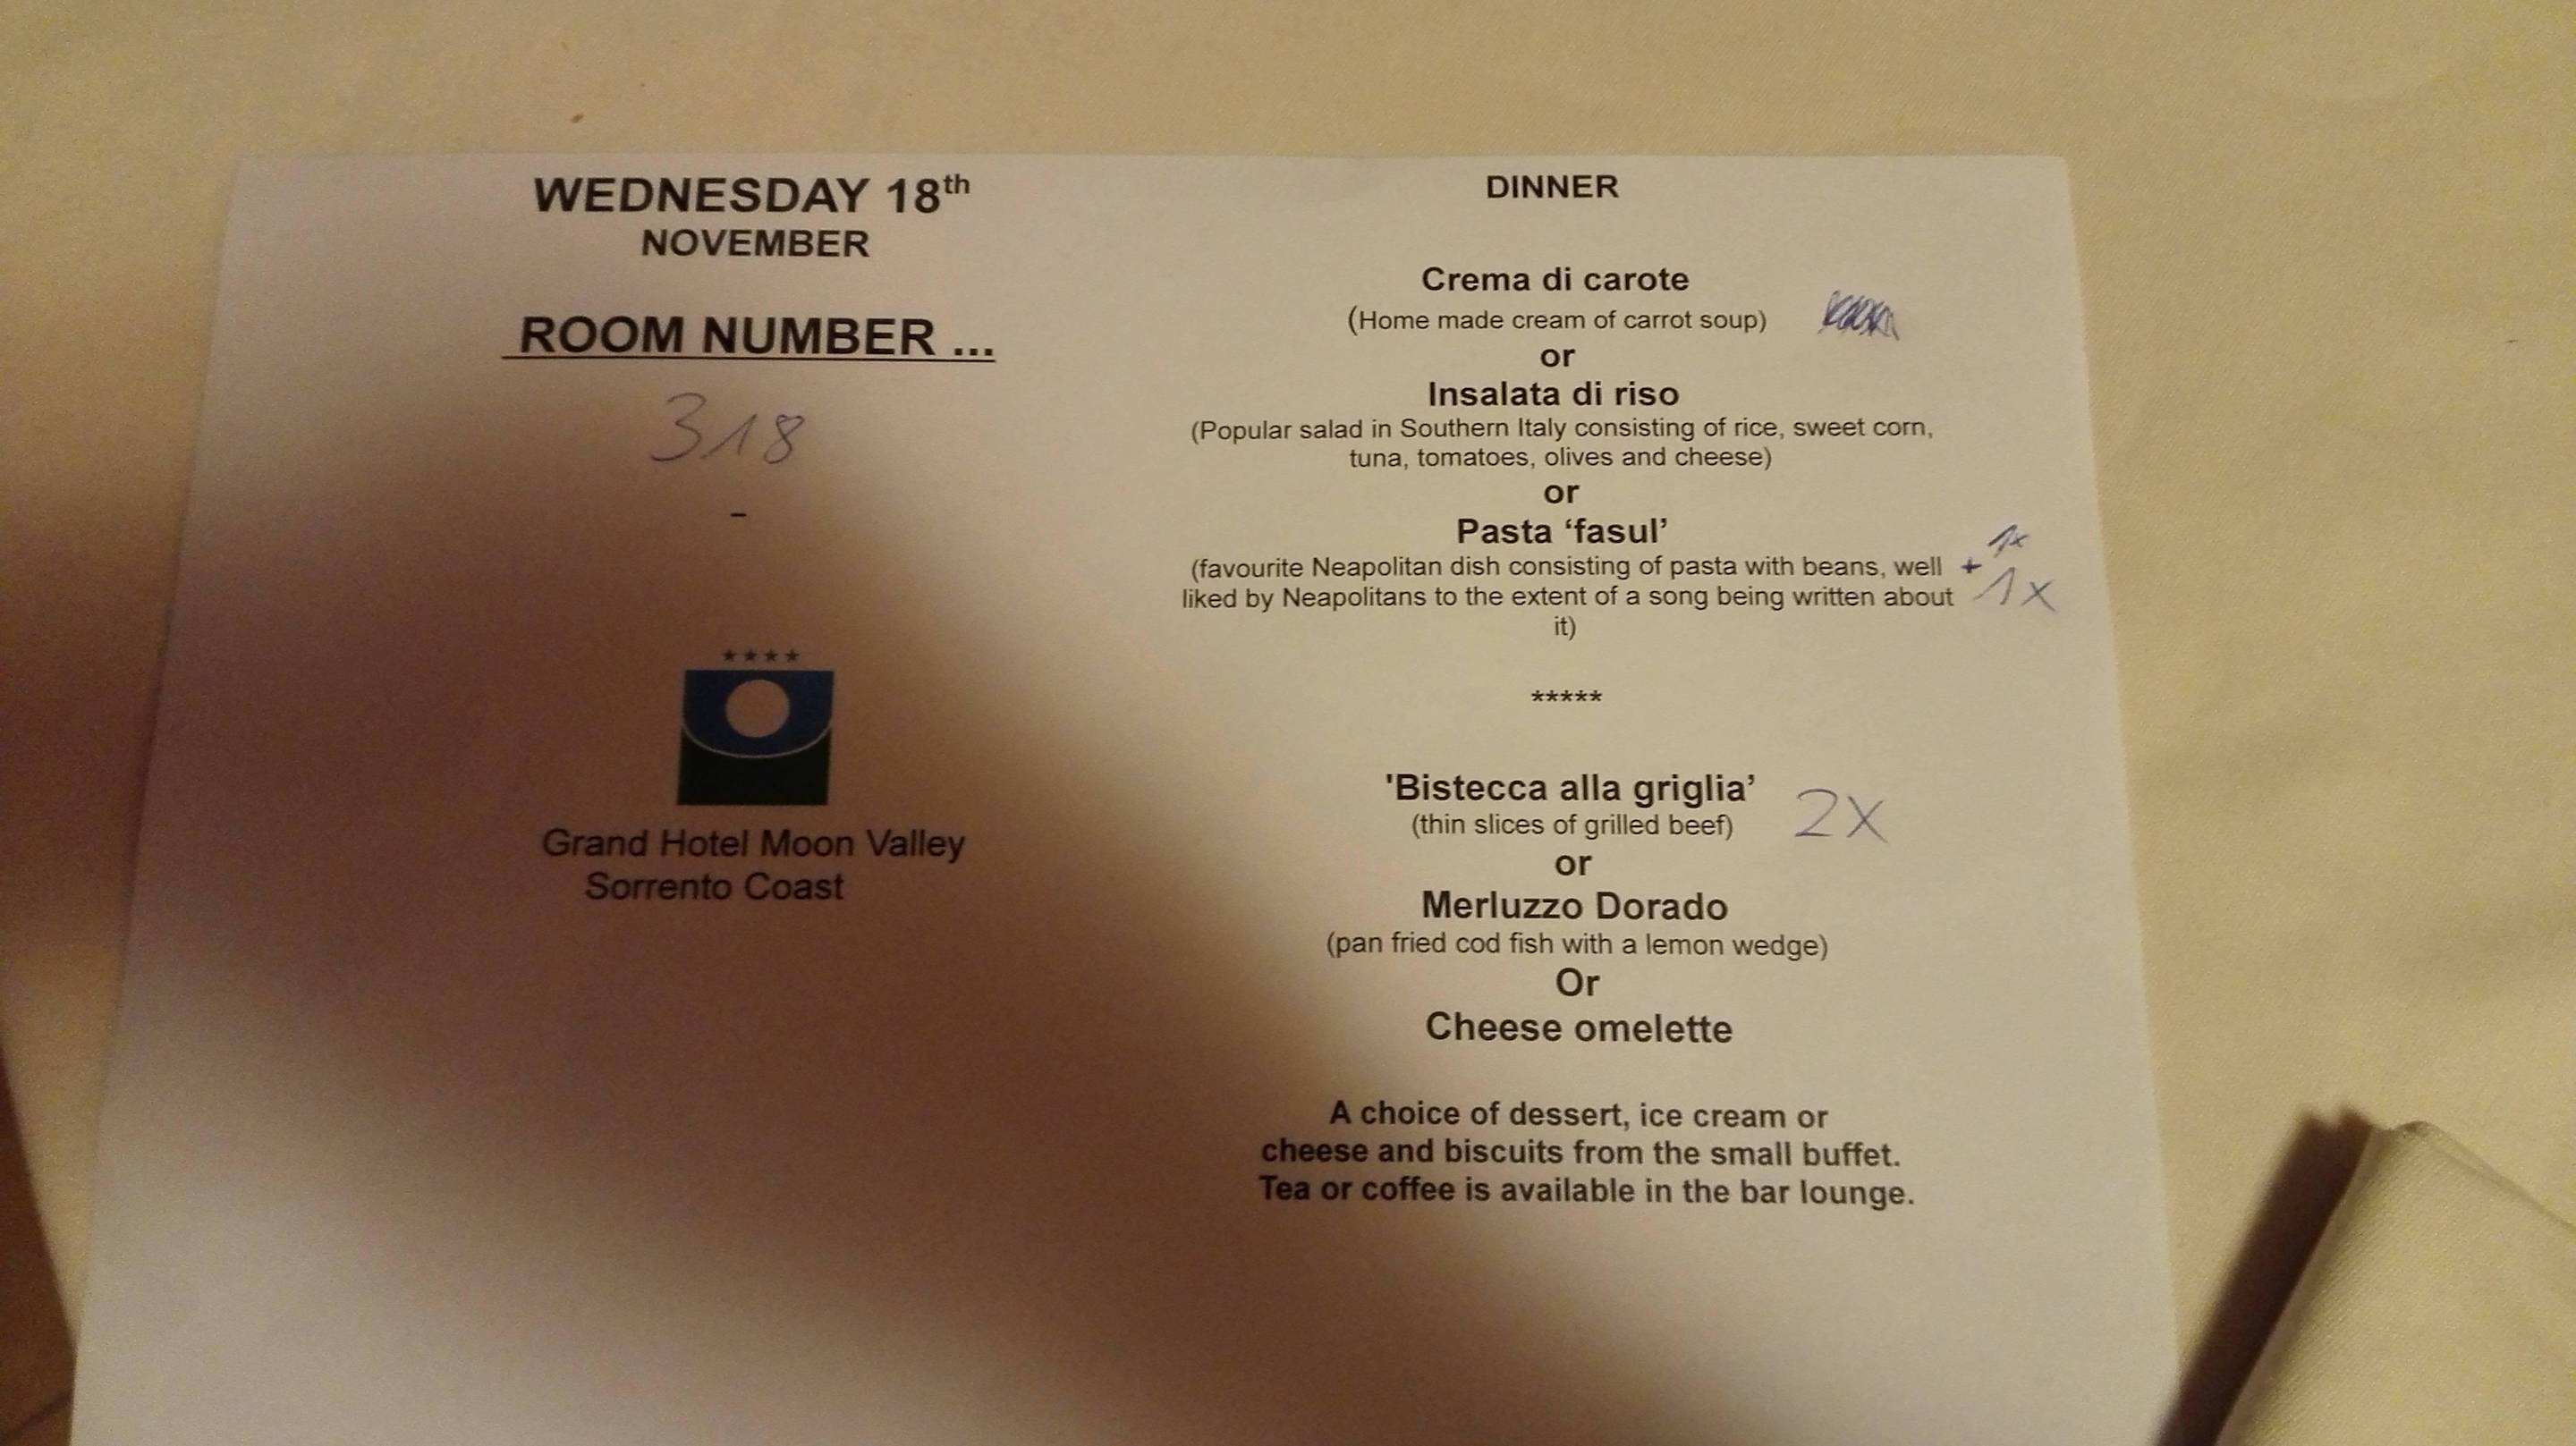 WEDNESDAY 18th
NOVEMBER
ROOM NUMBER ...
318
-
****
Grand Hotel Moon Valley
Sorrento Coast
DINNER
Crema di carote
(Home made cream of carrot soup)
or
Insalata di riso
(Popular salad in Southern Italy consisting of rice, sweet corn,
tuna, tomatoes, olives and cheese)
or
Pasta ‘fasul’
(favourite Neapolitan dish consisting of pasta with beans, well + 1x
liked by Neapolitans to the extent of a song being written about 1x
it)
*****
'Bistecca alla griglia’ 2X
(thin slices of grilled beef)
or
Merluzzo Dorado
(pan fried cod fish with a lemon wedge)
Or
Cheese omelette
A choice of dessert, ice cream or
cheese and biscuits from the small buffet.
Tea or coffee is available in the bar lounge.